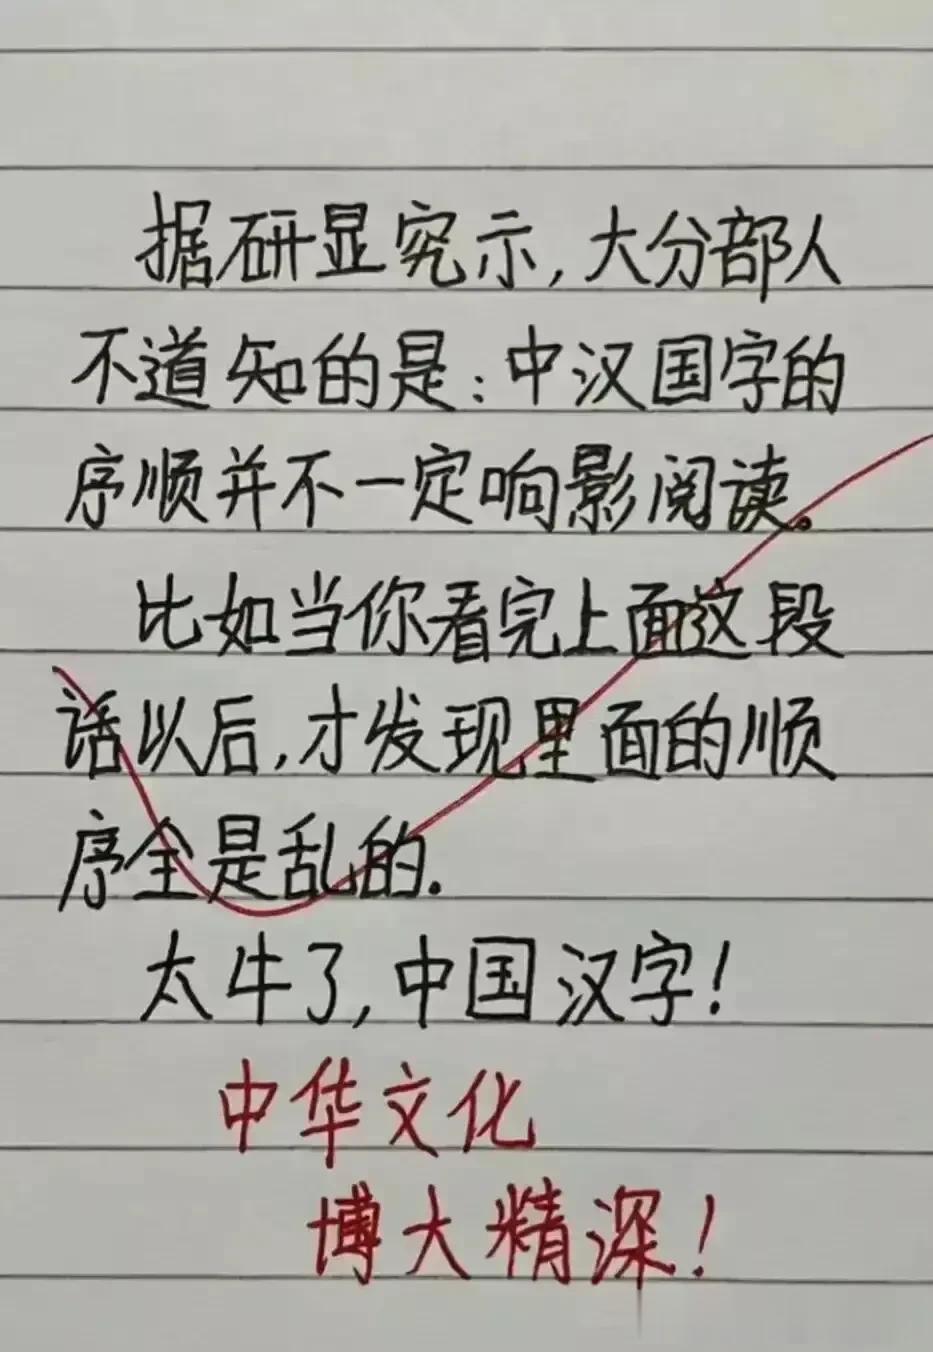 据研显究示,大分部人
不道知的是:中汉国字的
序顺并不一定响影阅读。
比如当你看完上面这段
话以后,才发现里面的顺
序全是乱的.
太牛了,中国汉字!
中华文化
博大精深!